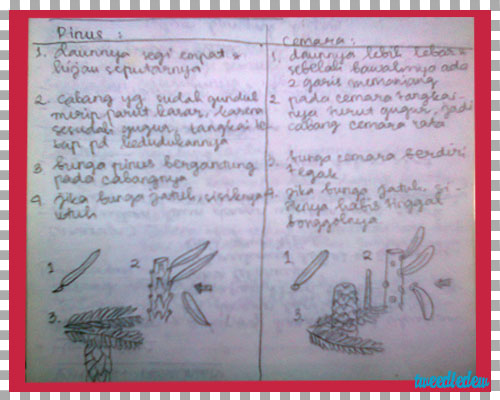 Pinus :
1. daunnya segi empat &
hijau seputarnya
2. cabang yg sudah gundul
mirip parut kasar, karena
sesudah gugur, tangkai te
tap pd kedudukannya
3 bunga pinus bergantung
pada cabangnya
4. jika bunga jatuh, sisiknya
utuh
1 2
3.
Cemara :
1. daunnya lebih lebar &
sebelah bawahnya ada
2 garis memanjang
2 pada cemara tangkai
nya turut gugur, jadi
cabang cemara rata
3. bunga cemara berdiri
tegak
4. jika bunga jatuh, si
nya habis tinggal
bonggolnya
1 2
3.
tweedledew